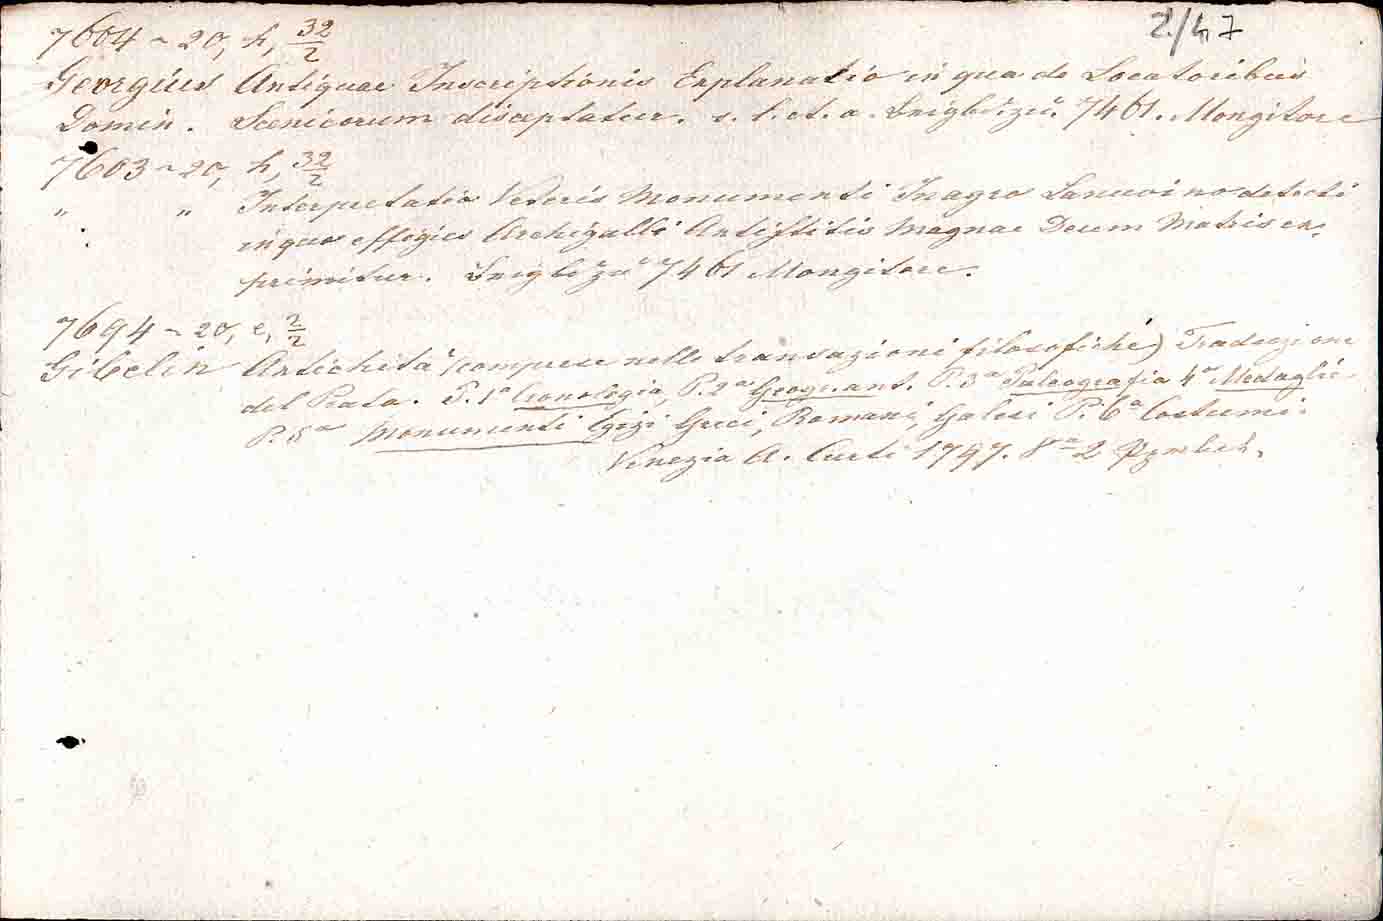 2/47
7604 ~ 20, h, 32/2
Georgius Antiquae Inscriptionis Explanatio in qua de Locatoribus
Domin. Scenicorum disceptatur. s. l. et. a. 7461. Mongitore
7603 ~ 20, h, 32/2
" " Interpretatio Veteris Monumenti In agro Lanuvino detecti
in quo effigies Archigalli Antistitis Magnae Deum Matris ex-
primitur. 7461 Mongitore.
7694 ~ 20, e, 2/2
Gibelin Antichità (comprese nelle transazioni filosofiche) Traduzione
del Prata. P. 1a Cronologia, P. 2a Geogr. ant. P. 3a Paleografia 4a Medaglie
P. 5a Monumenti Egizi Greci, Romani, Galesi P. 6a Costumi.
Venezia A. Curti 1797. 8a 2